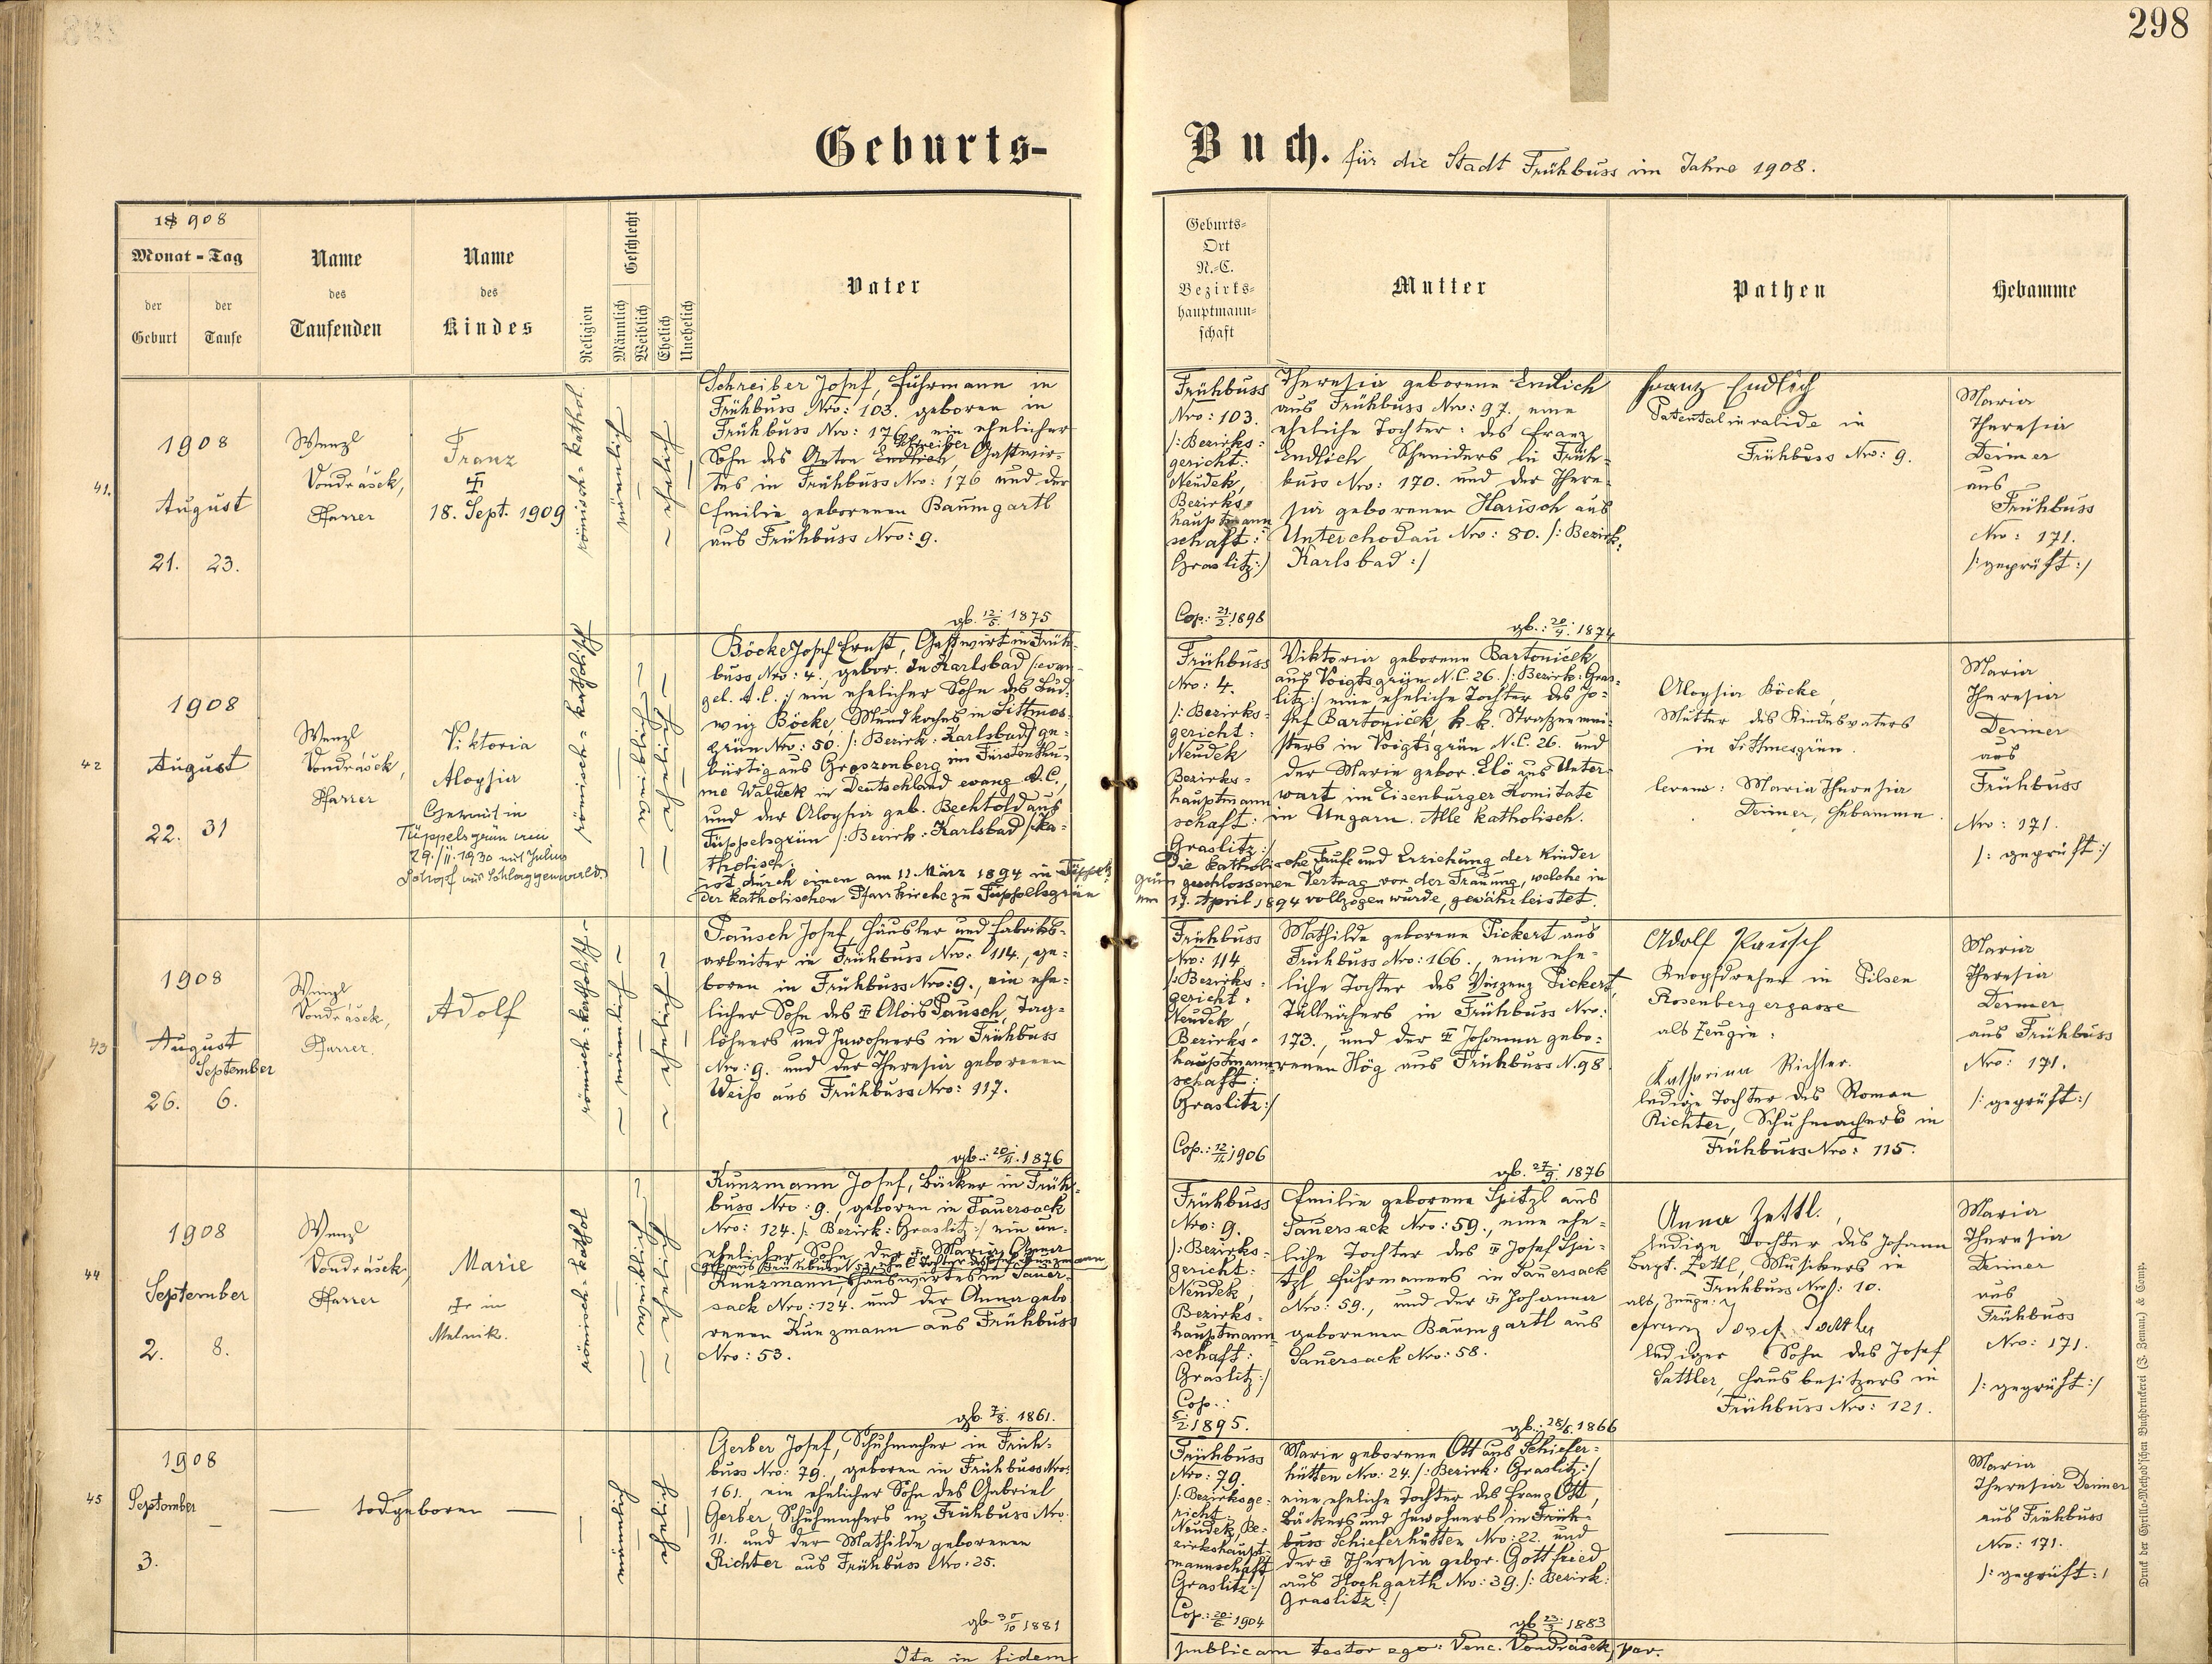 298
Geburts-
Buch. für die Stadt Frühbuss im Jahre 1908.
18 908
Monat - Tag
der Geburt
der Taufe
Name
des
Taufenden
Name
des
Kindes
Religion
Geschlecht
Männlich
Weiblich
Ehelich
Unehelich
Vater
Geburts-
Ort
N.-C.
Bezirks-
hauptmann-
schaft
Mutter
Pathen
Hebamme
41.
1908
August
21. 23.
Wenzl
Vondrásek,
Pfarrer
Franz
18. Sept. 1909
römisch-kathol.
Schreiber Josef, Fuhrmann in
Frühbuss Nro: 103. geboren in
Frühbuss Nro: 176 ein ehelicher
Schreiber
Sohn des Anton Endlich, Gastwir-
tes in Frühbuss Nro: 176 und der
Emilie geborenen Baumgartl
aus Frühbuss Nro: 9.
gb. 12/5. 1875
Frühbuss
Nro: 103.
/: Bezirks-
gericht:
Neudek,
Bezirks-
hauptmann
schaft:
Graslitz:/
Cop: 21/2. 1898
Theresia geborene Endlich
aus Frühbuss Nro: 97., eine
eheliche Tochter: des Franz
Endlich Schneiders in Früh-
buss Nro: 170. und der There-
sia geborenen Harisch aus
Unterchodau Nro: 80. /: Bezirk:
Karlsbad :/
gb.: 20/4. 1874
Franz Endlich
Patentalinvalide in
Frühbuss Nro: 9.
Maria
Theresia
Deimer
aus
Frühbuss
Nro: 171.
/: geprüft :/
42
1908
August
22. 31
Wenzl
Vondrásek,
Pfarrer
Viktoria
Aloysia
Getraut in
Tüppelsgrün am
29./11.1930 mit Julius
Schopf aus Schlaggenwald
römisch-katholisch
Böcke Josef Ernst, Gastwirt in Früh-
buss Nro: 4., gebor. in Karlsbad /: evan-
gel. A.C. :/ ein ehelicher Sohn des Lud-
wig Böcke, Mundkoches in Sittmes-
grün Nro: 50. /: Bezirk: Karlsbad:/ ge-
bürtig aus im Fürstenthu-
me Waldeck in Deutschland evang. A.C.,
und der Aloysia geb. Bechtold aus
Tüppelsgrün /: Bezirk: Karlsbad :/ ka-
tholisch.
ist durch einen am 11. März 1894 in Tüppels-
der katholischen Pfarrkirche zu Tüppelsgrün
Frühbuss
Nro: 4.
/: Bezirks-
gericht:
Neudek
Bezirks-
hauptmann
schaft:
Graslitz:/
Viktoria geborene Bartonicek
aus Voigtsgrün N.C. 26. /: Bezirk: Gras-
litz:/ eine eheliche Tochter des Jo-
sef Bartonicek, k.k. Strassenmei-
sters in Voigtsgrün N.C. 26. und
der Marie gebor. Elö aus Unter-
wart im Eisenburger Komitate
in Ungarn. Alle katholisch.
Die katholische Taufe und Erziehung der Kinder
grün geschlossenen Vertrag vor der Trauung, welche in
am 17. April 1894 vollzogen wurde, gewährleistet.
Aloysia Böcke,
Mutter des Kindesvaters
in Sittmesgrün.
levans: Maria Theresia
Deimer, Hebamme.
Maria
Theresia
Deimer
aus
Frühbuss
Nro: 171.
/: geprüft :/
43
1908
August
September
26. 6.
Wenzl
Vondrásek,
Pfarrer.
Adolf
römisch-katholisch
Pausch Josef, Häusler und Fabriks-
arbeiter in Frühbuss Nro: 114., ge-
boren in Frühbuss Nro: 9., ein ehe-
licher Sohn des Alois Pausch, Tag-
löhners und Inwohners in Frühbuss
Nro: 9. und der Theresia geborenen
Weiss aus Frühbuss Nro: 117.
gb.: 20/11. 1876
Frühbuss
Nro: 114
/: Bezirks-
gericht:
Neudek,
Bezirks-
hauptmann-
schaft:
Graslitz:/
Cop.: 12/11. 1906
Mathilde geborene Pickert aus
Frühbuss Nro: 166., eine ehe-
liche Tochter des Vinzenz Pickert,
Tüllnähers in Frühbuss Nro:
173., und der Johanna gebo-
renen Hög aus Frühbuss N. 98
gb. 27/9. 1876
Adolf Pausch
Knopfdreher in Pilsen
Rosenbergergasse
als Zeugin:
Katharina Richter.
ledige Tochter des Roman
Richter, Schuhmachers in
Frühbuss Nro: 115.
Maria
Theresia
Deimer
aus Frühbuss
Nro: 171.
/: geprüft :/
44
1908
September
2. 8.
Wenzl
Vondrásek,
Pfarrer
Marie
in
Melnik.
römisch-kathol
Kunzmann Josef, Bäcker in Früh-
buss Nro: 9., geboren in Sauersack
Nro: 124. /: Bezirk: Graslitz:/ ein un-
ehelicher Sohn, der Maria Anna
Kunzmann, Hauswirtes in Sauer-
sack Nro: 124. und der Anna gebo
renen Kunzmann aus Frühbuss
Nro: 53.
gb. 7/8. 1861.
Frühbuss
Nro: 9.
/: Bezirks-
gericht:
Neudek,
Bezirks-
hauptmann
schaft:
Graslitz:/
Cop.:
5/2. 1895.
Emilie geborene Spitzl aus
Sauersack Nro: 59., eine ehe-
liche Tochter des Josef Spi-
tzl, Fuhrmannes in Sauersack
Nro: 59., und der Johanna
geborenen Baumgartl aus
Sauersack Nro: 58.
gb.: 28/5. 1866
Anna Zettl.,
ledige Tochter des Johann
Bapt. Zettl, Musikers in
Frühbuss Nro: 10.
als Zeuge:
Franz Josef Sattler
lediger Sohn des Josef
Sattler, Hausbesitzers in
Frühbuss Nro: 121.
Maria
Theresia
Deimer
aus
Frühbuss
Nro: 171.
/: geprüft :/
45
1908
September
3.
todgeboren
Gerber Josef, Schuhmacher in Früh-
buss Nro: 79., geboren in Frühbuss Nro:
161. ein ehelicher Sohn des Gabriel
Gerber, Schuhmachers in Frühbuss Nro.
11. und der Mathilde geborenen
Richter aus Frühbuss Nro: 25.
gb 30/10 1881
Frühbuss
Nro: 79.
/: Bezirksge-
richt:
Neudek, Be-
zirkshaupt-
mannschaft
Graslitz:/
Cop.: 20/6. 1904
Marie geborene Ott aus Schiefer-
hütten Nro: 24. /: Bezirk: Graslitz:/
eine eheliche Tochter des Franz Ott,
Bäckers und Inwohners in Früh-
buss Schieferhütten Nro: 22. und
der Theresia gebor. Gottfried
aus Hochgarth Nro: 39. /: Bezirk:
Graslitz :/
gb 23/3. 1883
Maria
Theresia Deimer
aus Frühbuss
Nro: 171.
/: geprüft :/
Ita in fidem
publicam testor ego: Venc. Vondrásek, par.
Druck der Cyrillo-Method'schen Buchdruckerei (J. Zeman) & Comp.